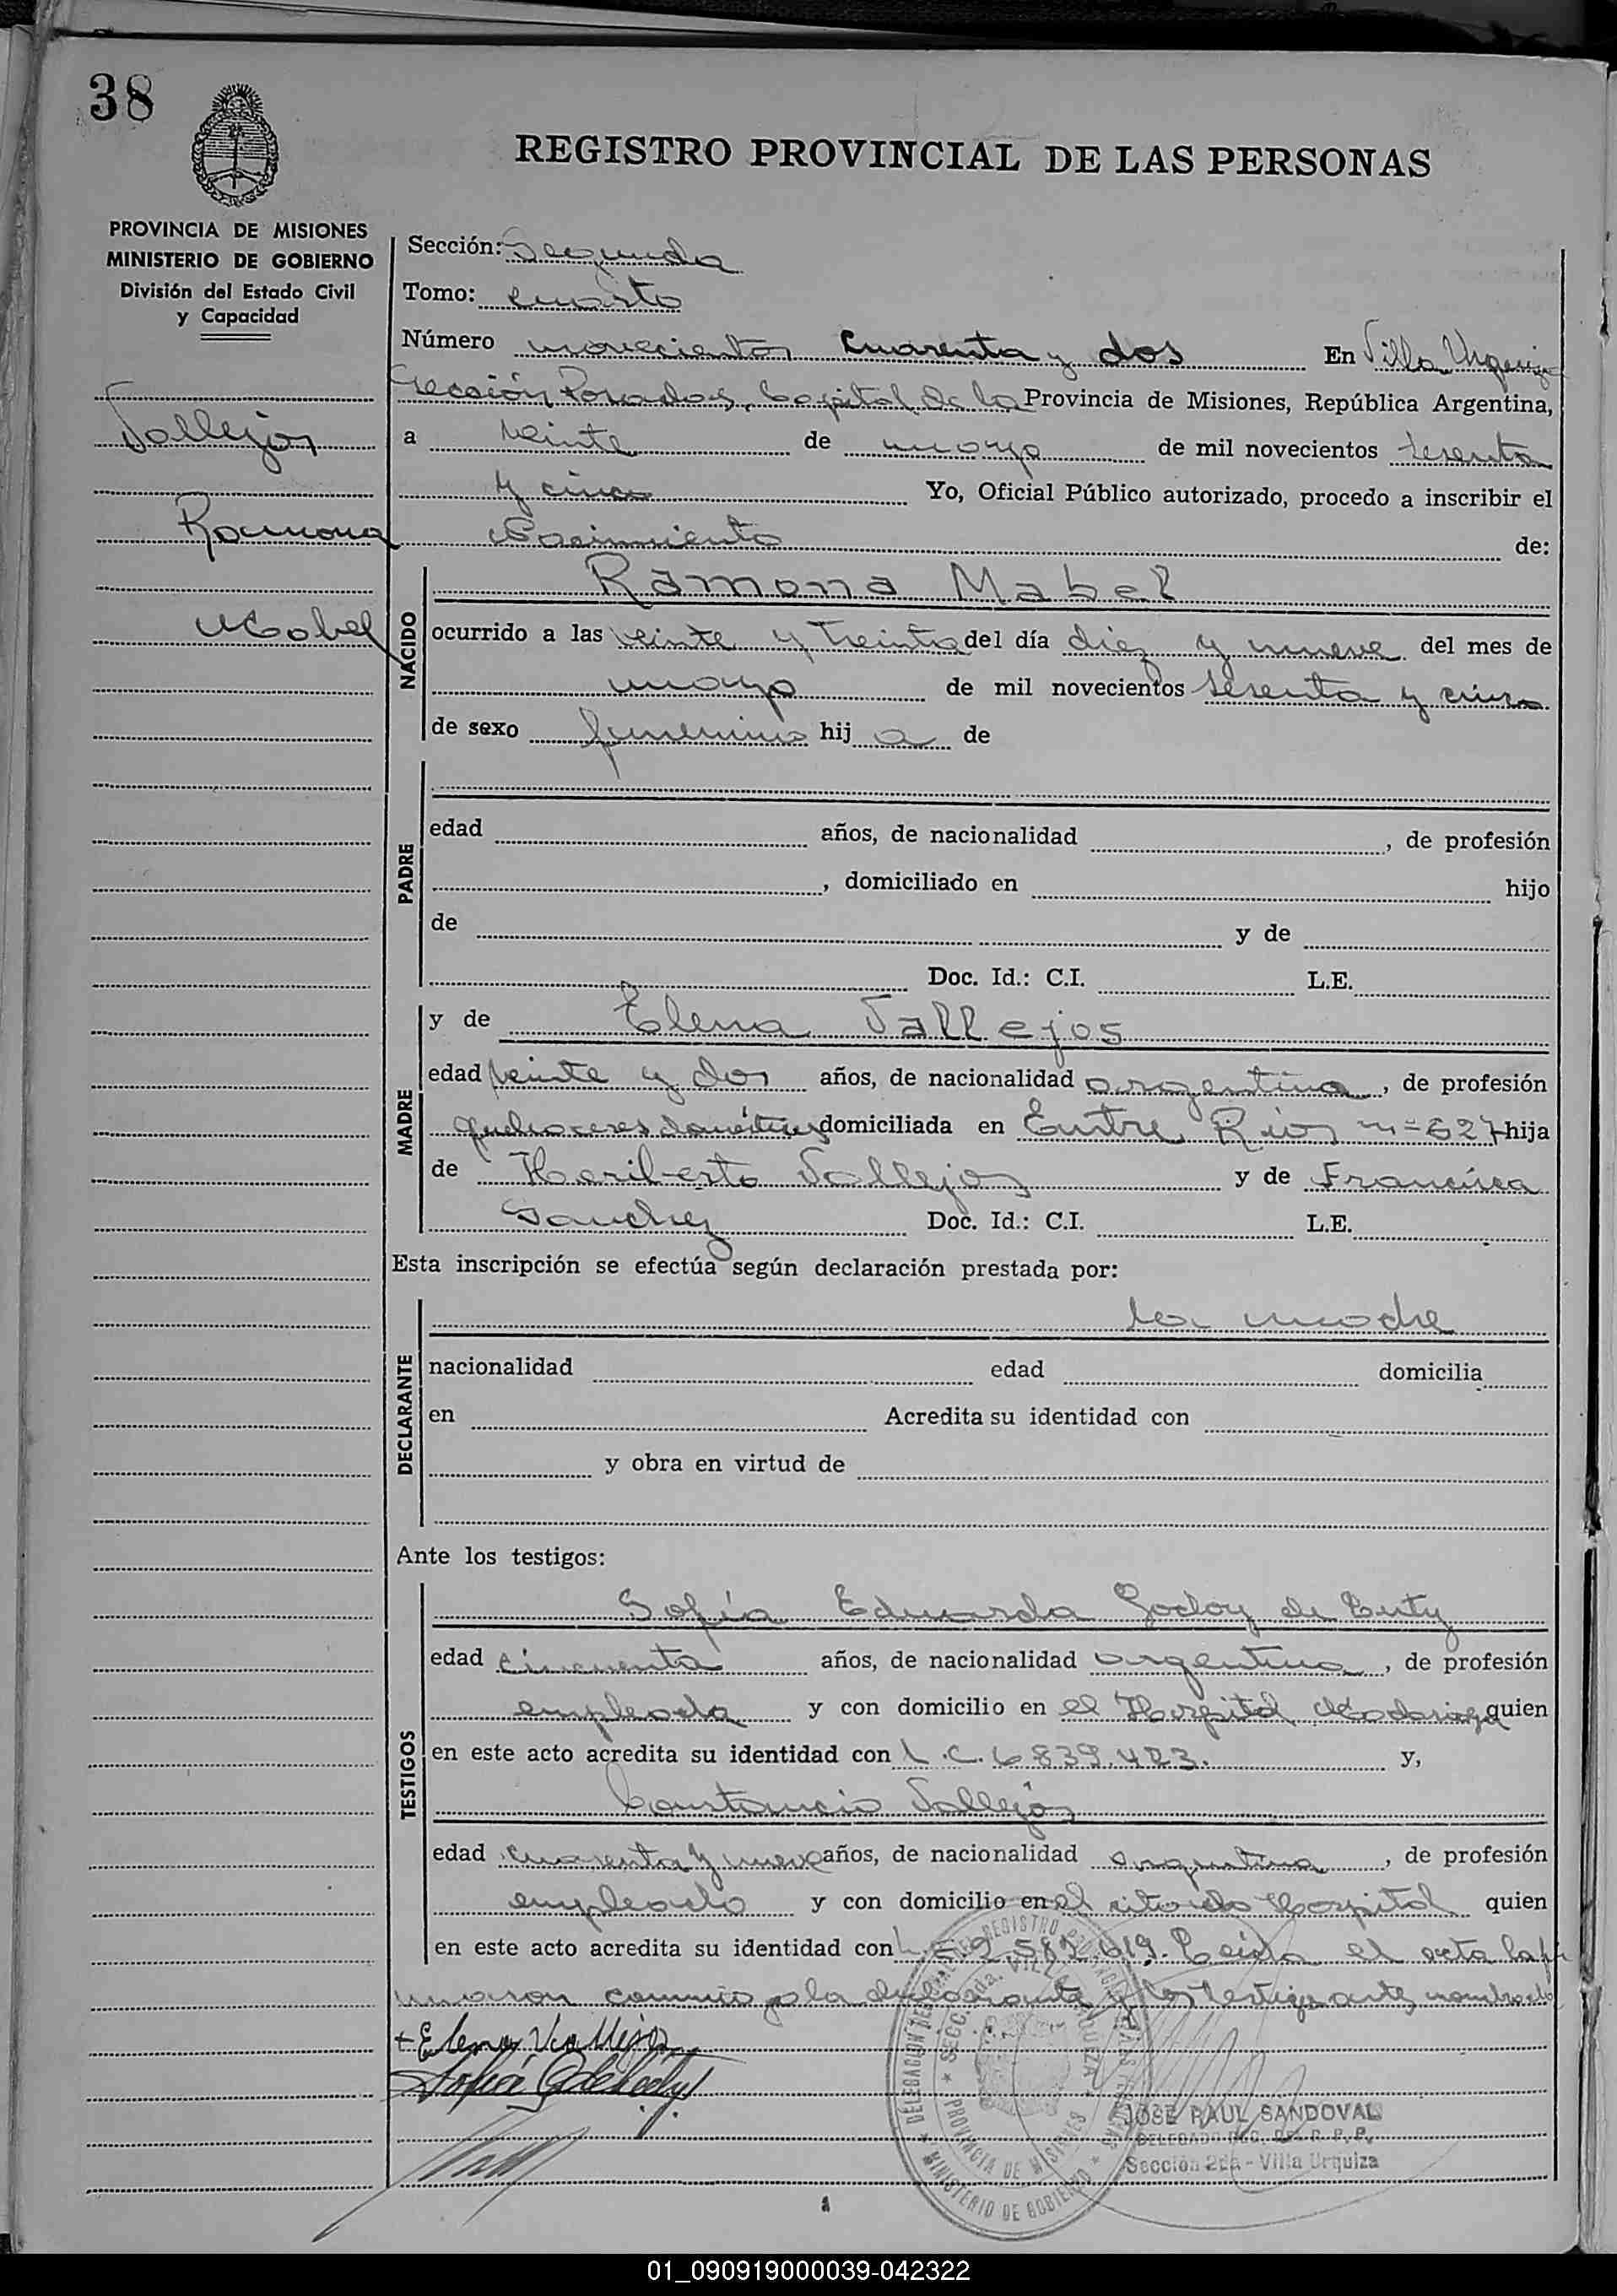 38
REGISTRO PROVINCIAL DE LAS PERSONAS
PROVINCIA DE MISIONES
MINISTERIO DE GOBIERNO
División del Estado Civil
y Capacidad
Vallejos
Ramona
Mabel
Sección: Segunda
Tomo: cuarto
Número novecientos cuarenta y dos En Villa Urquiza
Sección Posadas, Capital de la Provincia de Misiones, República Argentina,
a veinte de mayo de mil novecientos sesenta
y cinco Yo, Oficial Público autorizado, procedo a inscribir el
Nacimiento de:
NACIDO
Ramona Mabel
ocurrido a las veinte y treinta del día diez y nueve del mes de
mayo de mil novecientos sesenta y cinco
de sexo femenino hij a de
PADRE
edad años, de nacionalidad , de profesión
, domiciliado en hijo
de y de
Doc. Id.: C.I. L.E.
MADRE
y de Elena Vallejos
edad veinte y dos años, de nacionalidad argentina, de profesión
quehaceres domésticos domiciliada en Entre Rios nº 627 hija
de Heriberto Vallejos y de Francisca
Sanchez Doc. Id.: C.I. L.E.
Esta inscripción se efectúa según declaración prestada por:
DECLARANTE
la madre
nacionalidad edad domicilia
en Acredita su identidad con
y obra en virtud de
Ante los testigos:
TESTIGOS
Sofía Eduarda Godoy de
edad cincuenta años, de nacionalidad argentina, de profesión
empleada y con domicilio en el Hospital Madariaga quien
en este acto acredita su identidad con L.C. 6.839.423. y,
Constancio Vallejos
edad cuarenta y nueve años, de nacionalidad argentina, de profesión
empleado y con domicilio en el citado Hospital quien
en este acto acredita su identidad con 2.582.619. Leida el acta la fir
maron conmigo la declarante y los testigos antes nombrados
+Elena Vallejos
Sofía
JOSE RAUL SANDOVAL
DELEGADO REG. DE R. P. P.
Sección 2da - Villa Urquiza
DELEGACION DEL REGISTRO PROVINCIAL DE LAS PERSONAS
SECC. 2da. VILLA URQUIZA
PROVINCIA DE MISIONES
MINISTERIO DE GOBIERNO
01_090919000039-042322